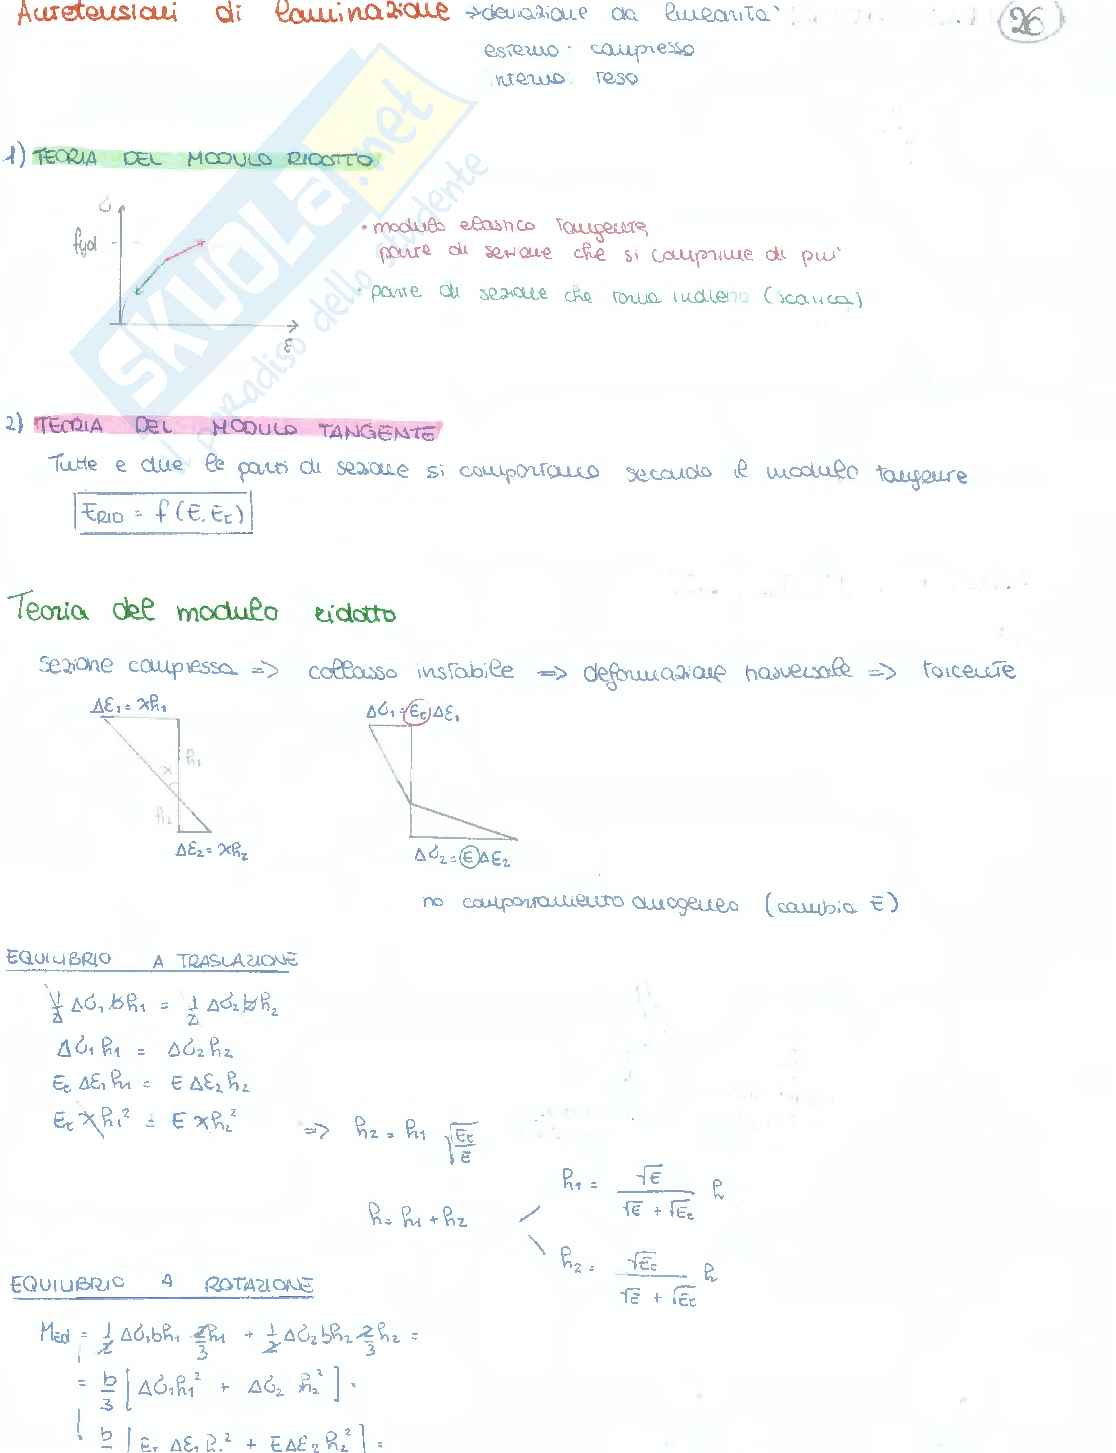 Autotensioni di laminazione → deviazione da linearità
26
esterno: compresso
interno: teso
1) TEORIA DEL MODULO RIDOTTO
σ
fyd
ε
• modulo elastico tangente,
parte di sezione che si comprime di più
• parte di sezione che torna indietro (scarica)
SKUOLA.net
il paradiso dello studente
2) TEORIA DEL MODULO TANGENTE
Tutte e due le parti di sezione si comportano secondo il modulo tangente
ERID = f (E, Et)
Teoria del modulo ridotto
sezione compressa => collasso instabile => deformazione trasversale =>
Δε1 = χh1
h1
χ
h2
Δε2 = χh2
Δσ1 = Et Δε1
Δσ2 = E Δε2
no comportamento omogeneo (cambia E)
EQUILIBRIO A TRASLAZIONE
1/2 Δσ1 b h1 = 1/2 Δσ2 b h2
Δσ1 h1 = Δσ2 h2
Et Δε1 h1 = E Δε2 h2
Et χ h1² = E χ h2² => h2 = h1 √(Et/E)
h = h1 + h2
h1 = √E / (√E + √Et) h
h2 = √Et / (√E + √Et) h
EQUILIBRIO A ROTAZIONE
MEd = 1/2 Δσ1 b h1 2/3 h1 + 1/2 Δσ2 b h2 2/3 h2 =
= b/3 [Δσ1 h1² + Δσ2 h2²] =
= b [Et Δε1 h1² + E Δε2 h2²] =